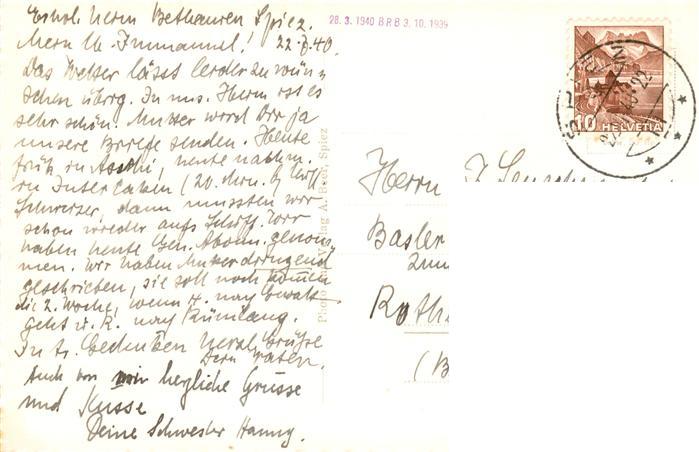 Erhol. Heim Bethanien Spiez.
Mein lb. Immanuel! 22.7.40.
Das Wetter lässt leider zu wün-
schen übrig. In uns. Heim ist es
sehr schön. Mutter wird Dir ja
unsere Briefe senden. Heute
früh in Aeschi, heute nachm.
in Interlaken (20. Min. b.
Schweizer, dann mussten wir
schon wieder aufs Schiff. Wir
haben heute Gen. Abonn. genom-
men. Wir haben Mutter dringend
geschrieben, sie soll noch kommen
die 2. Woche, wenn H. nach
geht u. R. nach Rümlang.
In tr. Gedenken herzl. Grüsse
Dein Vater.
Auch von mir herzliche Grüsse
und Küsse
Deine Schwester Hanny.
Verlag A. Spiez
28. 3. 1940 B R B 3. 10. 1939
10 HELVETIA
Herrn J.
Basler
Zum
Roth
(B